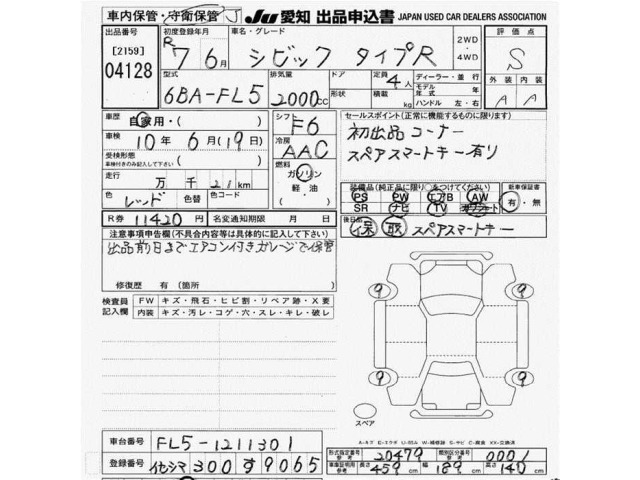 車内保管・守衛保管 J JU 愛知 出品申込書 JAPAN USED CAR DEALERS ASSOCIATION
出品番号 [2159] 04128
初度登録年月 R 7年 6月
車名・グレード シビック タイプR
2WD・4WD
評価点 S
型式 6BA-FL5
排気量 2000cc
ドア 形状
定員 4人 積載 kg
ディーラー・並行
モデル年式 年
ハンドル 左・右
外装 A 内装 A
車歴 自家用・( )
シフト F6
車検 10年 6月(19日)
冷房 AAC
受検形態 車検付きのみ記入して下さい ( )
燃料 ガソリン 軽・油 ( )
走行 万 千 21km
色 レッド 色替 色コード
R券 11420円 名変通知期限 月 日
セールスポイント(正常に機能するものに限ります)
初出品コーナー
スペアスマートキー有り
装備品(純正品に限り○をつけてください)
PS PW エアB AW
SR ナビ TV
新車保証書 有・無
後日品 保 取 スペアスマートキー
注意事項申告欄(不具合内容等は具体的に記入して下さい)
出品前日までエアコン付きガレージで保管
修復歴 有(箇所 )
検査員記入欄
FW キズ・飛石・ヒビ割・リペア跡・X要
内装 キズ・汚レ・コゲ・穴・スレ・キレ・破レ
9 9
9 9
スペア
A-キズ E-エクボ U-凹ム W-補修跡 S-サビ C-腐食 XX-交換済
車台番号 FL5-1211301
登録番号 イセシマ 300 す 9065
形式指定番号 参考 20479 類別区分番号 参考 0001
車両証明用 参考 長さ 459cm 幅 189cm 高さ 140cm